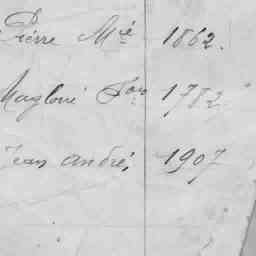 Pierre Mié 1862.
Magloire Fois 1782
Jean andré, 1907